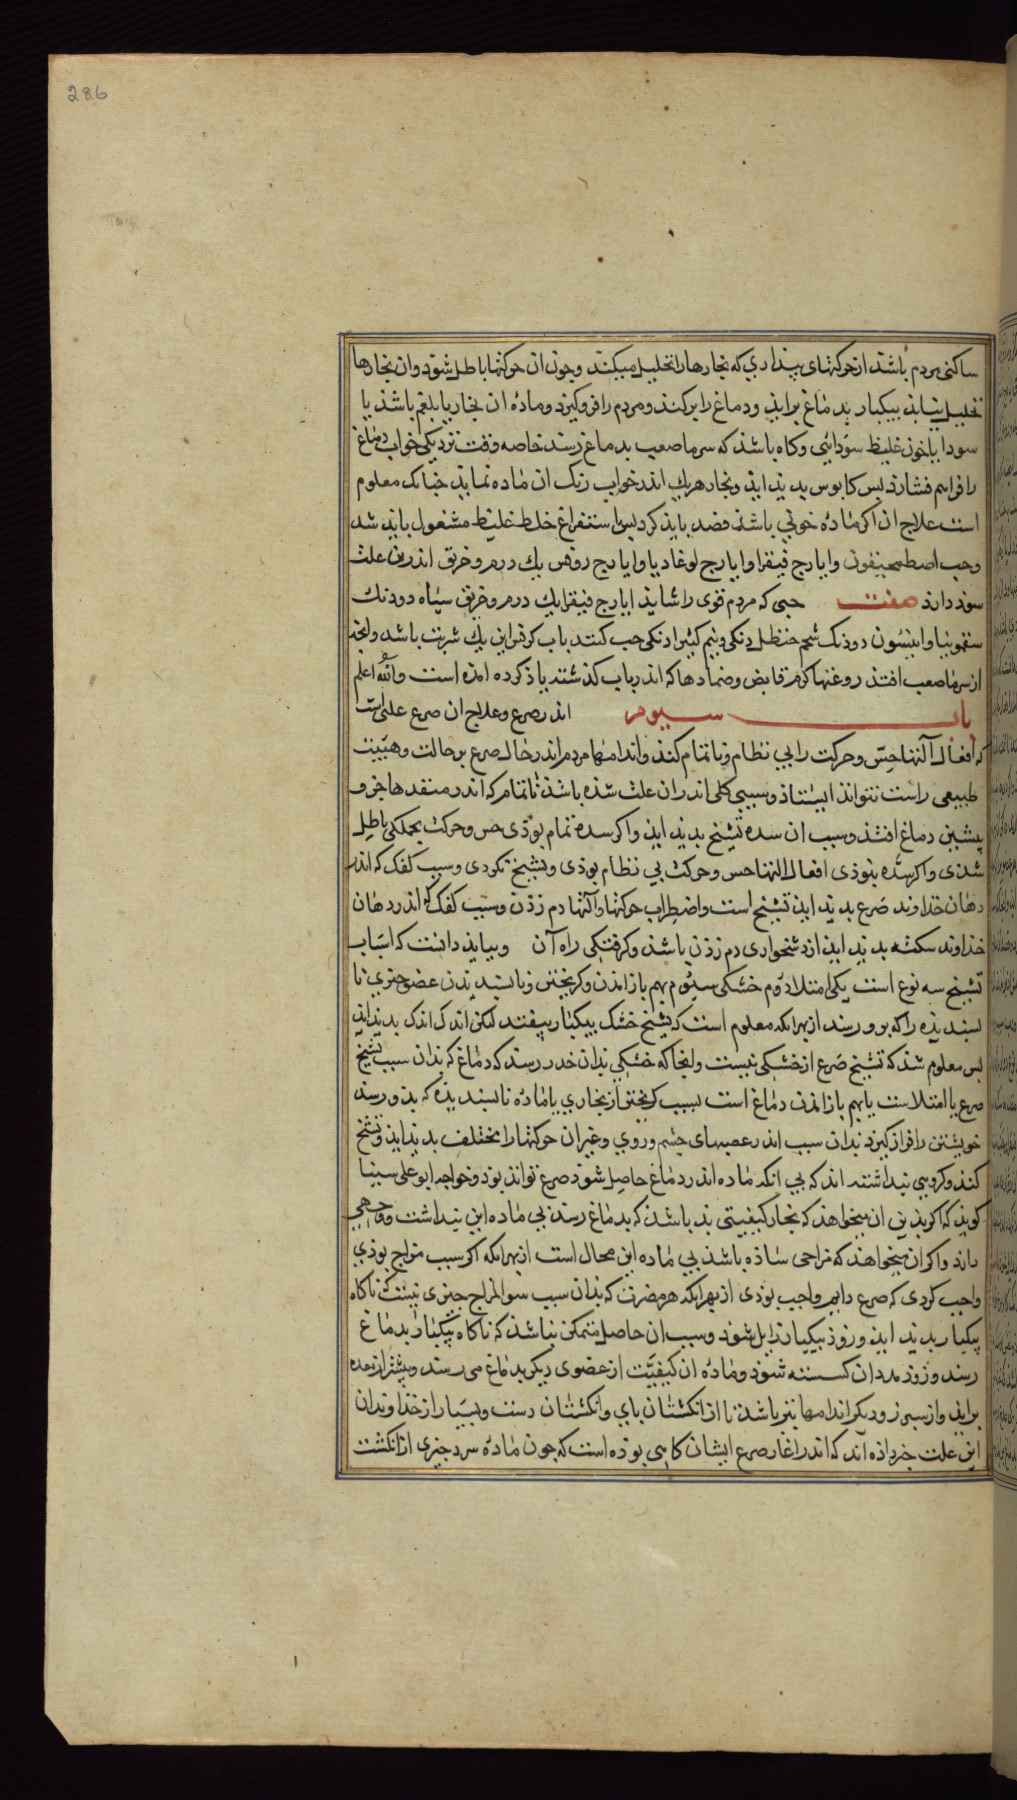 286
ساکنی مردم باشذ از حرکتهای بیداری که بخارها را تحلیل میکند و چون ان حرکتها باطل شوذ وان بخارها
تحلیل نیابذ بیکبار بدماغ برایذ و دماغ را پر کند و مردم را فرو کیرذ و مادۀ ان بخار یا بلغم باشذ یا
سودا یا خون غلیظ سودائی و کاه باشذ که سرما صعب بدماغ رسذ خاصه وقت نزدیکی خواب و دماغ
را فراهم فشارذ بس کابوس بدید ایذ و بخار هر یک اندر خواب رنک ان ماده نمایذ جنانک معلوم
است علاج ان اکر مادۀ خونی باشذ فصد بایذ کرد بس استفراغ خلط غلیظ مشغول بایذ شد
وحب اصطمخیقون و ایارج فیقرا و ایارج لوغادیا و ایارج روفس یک درم و خربق اندرین علت
سوذ دارد صفت حبی که مردم قوی را شایذ ایارج فیقرا یک درم و خربق سیاه دو دنک
سقمونیا و انیسون دو دنک شحم حنظل دنکی و نیم کتیرا دنکی حب کنند باب کرفس این یک شربت باشد و انجه
از سرما صعب افتذ روغنها کرم قابض و ضمادها که اندر باب کذشته یاذ کرده امذه است والله اعلم
باب سیوم اندر صرع و علاج ان صرع علتی است
که افعال آلتها حس و حرکت را بی نظام و ناتمام کند و اندامها مردم اندر حال صرع بر حالت و هیئت
طبیعی راست نتواند ایستاذ و سببی کلی اندران علت سُدّه باشذ ناتمام که اندر منفذها جزو
پیشین دماغ افتذ و سبب ان سده تشنج بدید ایذ و اکر سده تمام بوذی حس و حرکت بجملکی باطل
شذی و اکر سُدّه نبوذی افعال التها حس و حرکت بی نظام بوذی و تشنج نکردی و سبب کفک که اندر
دهان خداوند صرع بدید ایذ تشنج است و اضطراب حرکتها و آلتها دم زذن و سبب کفک که اندر دهان
خذاوند سکته بدید ایذ از دشخواری دم زذن باشذ و کرفتکی راه آن و ببایذ دانست که اسباب
تشنج سه نوع است یکی امتلا دوم خشکی سیوم بهم باز امذن و کریختن و ناپسندیدن عضو جیزی نا
پسندیذه را که بذو رسذ از بهر انکه معلوم است که تشنج خشک بیکبار نیفتد لکن اندک اندک بدید ایذ
بس معلوم شد که تشنج صرع از خشکی نیست و انجا که خشکی بدان حد در رسد که دماغ که بدان سبب تشنج
صرع یا امتلاست یا بهم باز امذن دماغ است بسبب کریختن از بخاری یا مادۀ ناپسندیذه که بذو رسذ
خویشتن را فراز کیرذ بدان سبب اندر عصبهای چشم و روی و غیر ان حرکتها را مختلف بدید ایذ و تشنج
کند و کروهی پنداشته اند که بی انکه ماده اندر دماغ حاصل شوذ صرع تواند بوذ و خواجه ابو علی سینا
کویذ که اکر بذین ان میخواهذ که بخار کیفیتی بذ باشذ که بدماغ رسذ بی ماده این پنداشت وجهی
دارذ و اکر ان میخواهند که مزاجی ساذه باشذ بی ماده این محال است از بهر انکه اکر سبب مزاج بوذی
واجب کردی که صرع دایم واجب بوذی از بهر انکه هر مضرت که بذان سبب سو المزاج جیزی نیست که ناکاه
بیکبار بدید ایذ و زوذ بیکبار زایل شوذ و سبب ان حاصل متمکن نباشذ که ناکاه بیکبار بدماغ
رسذ و زوذ مدد ان کسسته شوذ و مادۀ ان کیفیّت از عضوی دیکر بدماغ می رسذ و بیشتر از معده
برایذ و از سپرز و دیکر اندامها نیز باشذ تا از انکشتان بای و انکشتان دست و بسیار از خذاوندان
این علت خبر داذه آند که اندر اغاز صرع ایشان کاهی بوذه است که جون مادۀ سرد جیزی از انکشت